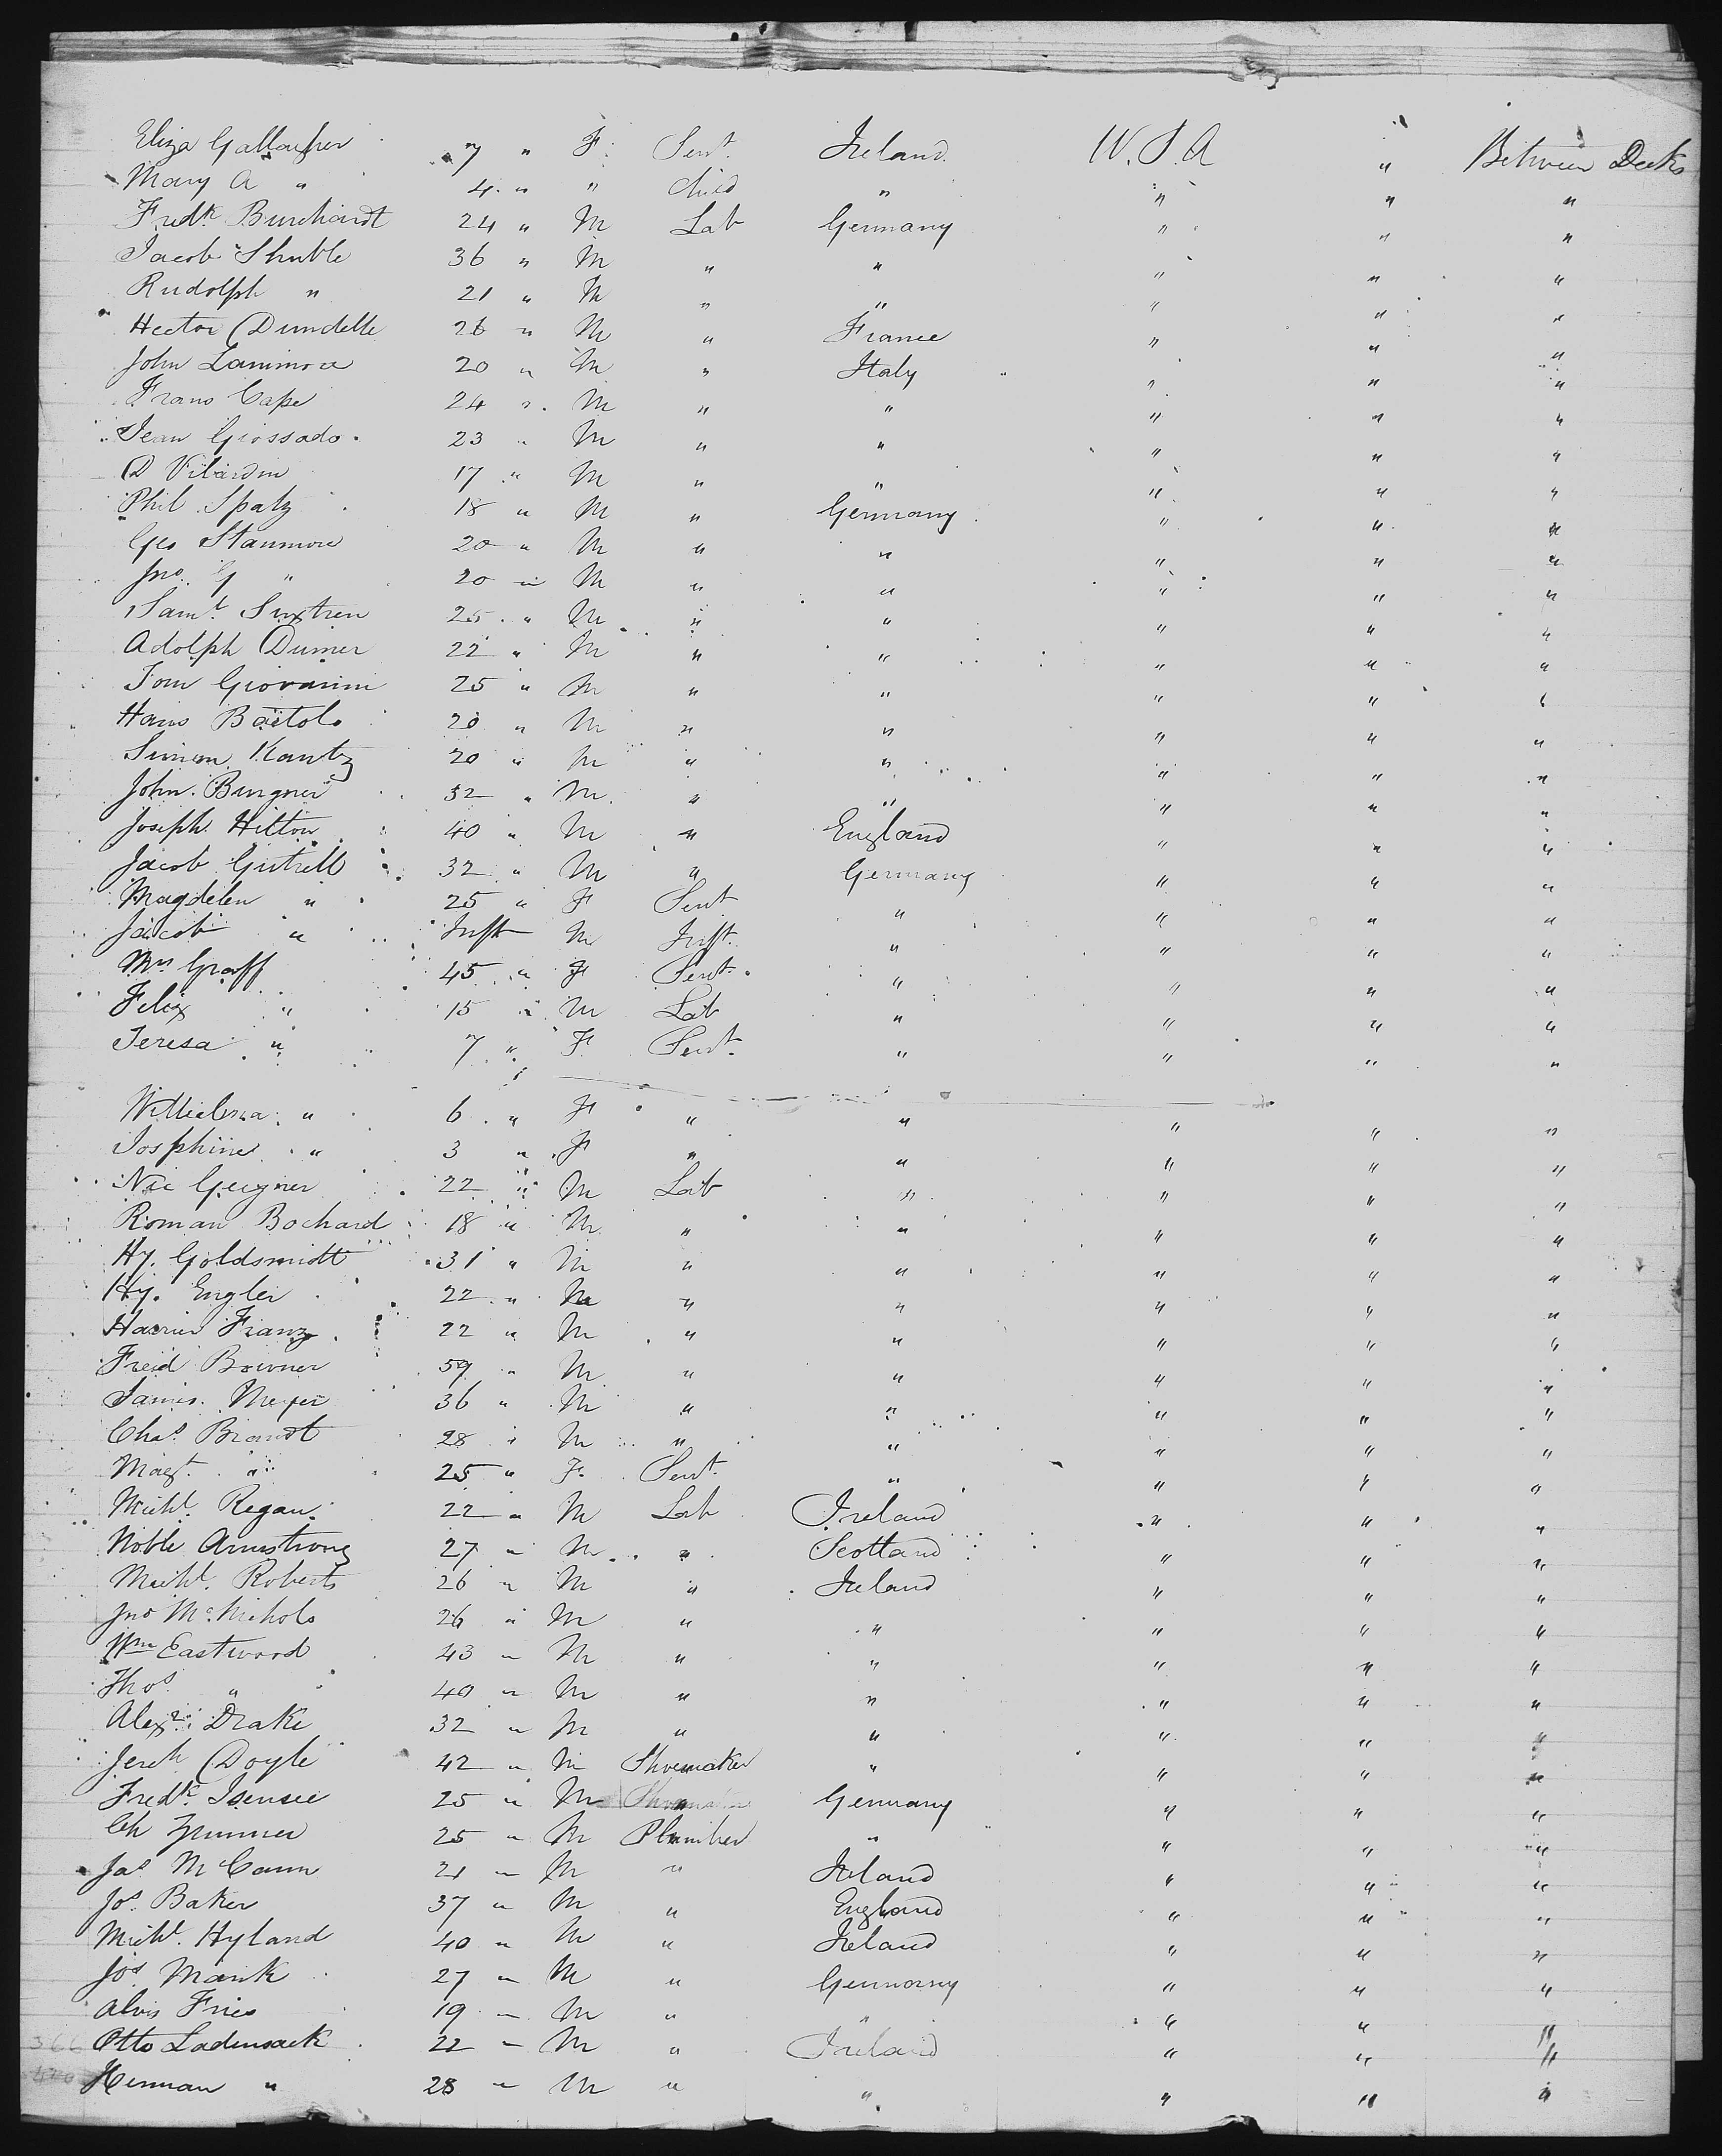 Eliza Gallagher 7 " F. Servt. Ireland. U.S.A " Between Decks
Mary A " 4 " " Child " " " "
Fredk. Burchardt 24 " M Lab Germany " " "
Jacob Shuble 36 " M " " " " "
Rudolph " 21 " M " " " " "
Hector Dundelle 26 " M " France " " "
John 20 " M " Italy " " "
Frans Cape 24 " M " " " " "
Jean Giossado. 23 " M " " " " "
D Vilardin 17 " M " " " " "
Phil. Spatz 18 " M " Germany " " "
Geo Stanmore 20 " M " " " " "
Jno. G " 20 " M " " " " "
Saml. 25 " M " " " " "
Adolph Dumer 22 " M " " " " "
Tom Giovanni 25 " M " " " " "
Hans Bartolo 20 " M " " " " "
Simon Kantz 20 " M " " " " "
John. Burgner 32 " M. " " " " "
Joseph. Hilton 40 " M " England " " "
Jacob Gutrell 32 " M " Germany " " "
Magdelen " 25 " F Servt " " " "
Jacob " Inft M Infft. " " " "
Mrs Graff 45 " F Servt. " " " "
Felix " 15 " M Lab " " " "
Teresa " 7 " F. Servt. " " " "
Willielma " 6 " F " " " " "
Josphine " 3 " F " " " " "
Nic Geigner 22 " M Lab " " " "
Roman Bochard 18 " M " " " " "
Hy. Goldsmidt 31 " M " " " " "
Hy. Engler 22 " M " " " " "
Franz 22 " M " " " " "
Fried 59 " M " " " " "
James. Meyer 36 " M " " " " "
Chas. Brandt 28 " M " " " " "
Magt. " 25 " F. Servt. " " " "
Michl. Regan. 22 " M Lab Ireland " " "
Noble Armstrong 27 " M " Scotland " " "
Michl. Roberts 26 " M " Ireland " " "
Jno McNichols 26 " M " " " " "
Wm Eastwood 43 " M " " " " "
Thos. " 40 " M " " " " "
Alexr. Drake 32 " M " " " " "
Jereh Doyle 42 " M Shoemaker " " " "
Fredk. Isensee 25 " M " Germany " " "
Ch Zunner 25 " M Plumber " " " "
Jas. McCann 21 " M " Ireland " " "
Jos. Baker 37 " M " England " " "
Michl. Hyland 40 " M " Ireland " " "
Jos. Mank 27 " M " Germany " " "
Alvis Fries 19 " M " " " " "
366 Otto Ladensack 22 " M " Ireland " " "
Herman " 28 " M " " " " "